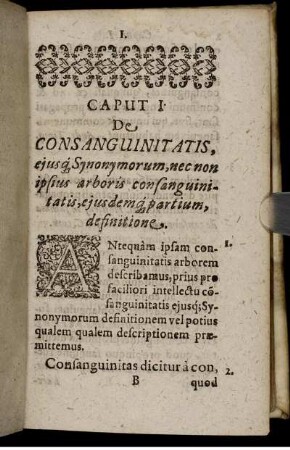 1.
CAPUT I.
De
CONSANGUINITATIS,
ejusq́, Synonymorum, nec non
ipsius arboris consanguini-
tatis, ejusdemq́, partium,
definitione.
ANtequàm ipsam con- 1.
sanguinitatis arborem
describamus, prius pro
faciliori intellectu cõ-
sanguinitatis ejusq́; Sy-
nonymorum definitionem vel potius
qualem qualem descriptionem præ-
mittemus.
Consanguinitas dicitur à con, 2.
B quod